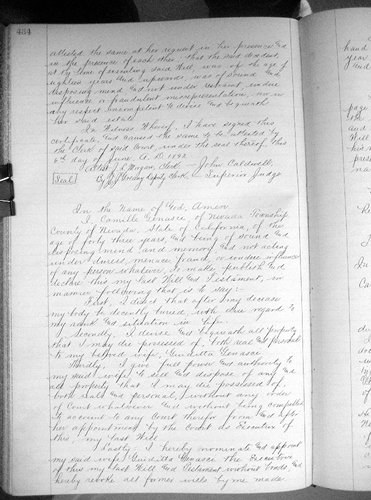 434
attested the same at her request in her presence and
in the presence of each other, that the said decedent,
at the time of executing said Will, was of the age of
eighteen years and upwards, was of sound and
disposing mind and not under restraint, undue
influence or fraudulent misrepresentation, nor in
any respect incompetent to devise and bequeath
her said estate.
In Witness Whereof, I have signed this
certificate, and caused the same to be attested by
the Clerk of said Court, under the seal thereof this
6th day of June A.D. 1892.
Attest, J. L. Morgan, Clerk. John Caldwell,
Seal By Deputy Clerk. Superior Judge.
In the Name of God, Amen.
I, Camille Genasce of Nevada Township
County of Nevada, State of California, of the
age of forty three years, and being of sound and
disposing mind and memory, and not acting
under duress, menace, fraud, or undue influence
of any person whatever, do make, publish and
declare this my last Will and Testament, in
manner following, that is to say:
First, I direct that after my decease
my body be decently buried, with due regard to
my rank and situation in life.
Secondly, I devise and bequeath all property
that I may die possessed of, both real and personal
to my beloved wife, Genasce.
Thirdly, I give full power and authority to
my said wife to sell and dispose of any and
all property that I may die possessed of,
both real and personal, without any order
of Court whatever and without being compelled
to account to any Court therefor from and after
her appointment by the Court as Executrix of
this, my last Will.
Lastly, I hereby nominate and appoint
my said wife, Genasce the Executrix
of this my last Will and Testament without bonds, and
hereby revoke all former wills by me made